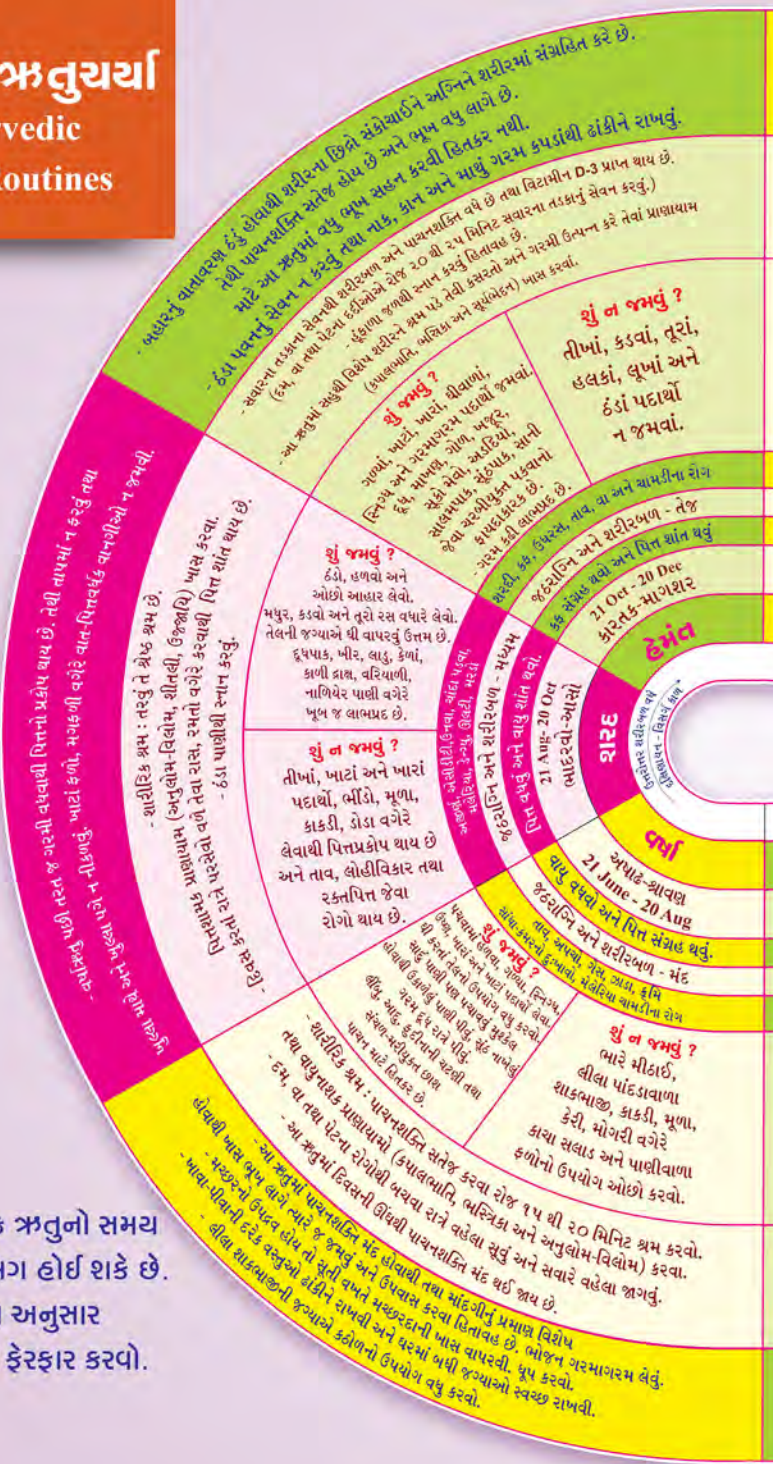 ઋતુચર્યા
vedic
outines
- બહારનું વાતાવરણ ઠંડું હોવાથી શરીરના છિદ્રો સંકોચાઈને અગ્નિને શરીરમાં સંગ્રહિત કરે છે.
તેથી પાચનશક્તિ સતેજ હોય છે અને ભૂખ વધુ લાગે છે.
માટે આ ઋતુમાં વધુ ભૂખ સહન કરવી હિતકર નથી.
- ઠંડા પવનનું સેવન ન કરવું તથા નાક, કાન અને માથું ગરમ કપડાંથી ઢાંકીને રાખવું.
- સવારના તડકાના સેવનથી શરીરબળ અને પાચનશક્તિ વધે છે તથા વિટામીન D-3 પ્રાપ્ત થાય છે.
(દમ, વા તથા પેટના દર્દીઓએ રોજ ૨૦ થી ૨૫ મિનિટ સવારના તડકાનું સેવન કરવું.)
- હૂંફાળા જળથી સ્નાન કરવું હિતાવહ છે.
- આ ઋતુમાં સહુથી વિશેષ શરીરને શ્રમ પડે તેવી કસરતો અને ગરમી ઉત્પન્ન કરે તેવાં પ્રાણાયામ
(કપાલભાતિ, ભસ્ત્રિકા અને સૂર્યભેદન) ખાસ કરવાં.
શું જમવું ?
ગળ્યાં, ખાટાં, ખારાં, ઘીવાળાં,
સ્નિગ્ધ અને ગરમાગરમ પદાર્થો જમવાં.
દૂધ, માખણ, ગોળ, ખજૂર,
સૂકો મેવો, અડદિયો,
સાલમપાક, સૂંઠપાક, સાની
જેવા ચરબીયુક્ત પકવાનો
ફાયદાકારક છે.
- ગરમ કઢી લાભપ્રદ છે.
શું ન જમવું ?
તીખાં, કડવાં, તૂરાં,
હલકાં, લૂખાં અને
ઠંડાં પદાર્થો
ન જમવાં.
શરદી, કફ, ઉધરસ, તાવ, વા અને ચામડીના રોગ
જઠરાગ્નિ અને શરીરબળ - તેજ
કફ સંગ્રહ થવો અને પિત્ત શાંત થવું
21 Oct - 20 Dec
કારતક-માગશર
હેમંત
- વર્ષાઋતુ પછી તરત જ ગરમી વધવાથી પિત્તનો પ્રકોપ થાય છે. તેથી તાપમાં ન ફરવું તથા
ખુલ્લા માથે અને ખુલ્લા પગે ન નીકળવું. ખાટાં ફળો, મગફળી વગેરે વાત-પિત્તવર્ધક વાનગીઓ ન જમવી.
- શારીરિક શ્રમ : તરવું તે શ્રેષ્ઠ શ્રમ છે.
પિત્તશામક પ્રાણાયામ (અનુલોમ-વિલોમ, શીતલી, ઉજ્જાયિ) ખાસ કરવા.
- દિવસ કરતાં રાત્રે પરસેવો વળે તેવા રાસ, રમતો વગેરે કરવાથી પિત્ત શાંત થાય છે.
- ઠંડા પાણીથી સ્નાન કરવું.
શું જમવું ?
ઠંડો, હળવો અને
ઓછો આહાર લેવો.
મધુર, કડવો અને તૂરો રસ વધારે લેવો.
તેલની જગ્યાએ ઘી વાપરવું ઉત્તમ છે.
દૂધપાક, ખીર, લાડુ, કેળાં,
કાળી દ્રાક્ષ, વરિયાળી,
નાળિયેર પાણી વગેરે
ખૂબ જ લાભપ્રદ છે.
શું ન જમવું ?
તીખાં, ખાટાં અને ખારાં
પદાર્થો, ભીંડો, મૂળા,
કાકડી, ડોડા વગેરે
લેવાથી પિત્તપ્રકોપ થાય છે
અને તાવ, લોહીવિકાર તથા
રક્તપિત્ત જેવા
રોગો થાય છે.
અજીર્ણ, એસીડીટી, ઉનવા, ચાંદા પડવા,
મલેરિયા, ડેન્ગ્યુ, ઊલટી, મરડો
જઠરાગ્નિ અને શરીરબળ - મધ્યમ
પિત્ત વધવું અને વાયુ શાંત થવો.
21 Aug- 20 Oct
ભાદરવો-આસો
શરદ
ઉત્તરોત્તર શરીરબળ વધે
દક્ષિણાયન - વિસર્ગ કાળ
વર્ષા
અષાઢ-શ્રાવણ
21 June - 20 Aug
વાયુ વધવો અને પિત્ત સંગ્રહ થવું.
જઠરાગ્નિ અને શરીરબળ - મંદ
તાવ, અપચો, ગેસ, ઝાડા, કૃમિ
સાંધા-કમરનો દુઃખાવો, મેલેરિયા ચામડીના રોગ
શું જમવું ?
પચવામાં હળવા, ગળ્યા, સ્નિગ્ધ,
ઉષ્ણ, ખારા અને ખાટા પદાર્થો લેવા.
ઘી કરતાં તેલનો ઉપયોગ વધુ કરવો.
સાદું પાણી પણ પચાવવું મુશ્કેલ
હોવાથી ઉકાળેલું પાણી પીવું, સૂંઠ નાખેલું
ગરમ દૂધ રાત્રે પીવું.
લીંબુ, આદુ, ફુદીનાની ચટણી તથા
સંચળ-મરીયુક્ત છાશ
પાચન માટે હિતકર છે.
શું ન જમવું ?
ભારે મીઠાઈ,
લીલા પાંદડાવાળા
શાકભાજી, કાકડી, મૂળા,
કેરી, મોગરી વગેરે
કાચા સલાડ અને પાણીવાળા
ફળોનો ઉપયોગ ઓછો કરવો.
- શારીરિક શ્રમ : પાચનશક્તિ સતેજ કરવા રોજ ૧૫ થી ૨૦ મિનિટ શ્રમ કરવો.
તથા વાયુનાશક પ્રાણાયામો (કપાલભાતિ, ભસ્ત્રિકા અને અનુલોમ-વિલોમ) કરવા.
- દમ, વા તથા પેટના રોગોથી બચવા રાત્રે વહેલા સૂવું અને સવારે વહેલા જાગવું.
- આ ઋતુમાં દિવસની ઊંઘથી પાચનશક્તિ મંદ થઈ જાય છે.
- આ ઋતુમાં પાચનશક્તિ મંદ હોવાથી તથા માંદગીનું પ્રમાણ વિશેષ
હોવાથી ખાસ ભૂખ લાગે ત્યારે જ જમવું અને ઉપવાસ કરવા હિતાવહ છે. ભોજન ગરમાગરમ લેવું.
- મચ્છરનો ઉપદ્રવ હોય તો સૂતી વખતે મચ્છરદાની ખાસ વાપરવી. ધૂપ કરવો.
- ખાવા-પીવાની દરેક વસ્તુઓ ઢાંકીને રાખવી અને ઘરમાં બધી જગ્યાઓ સ્વચ્છ રાખવી.
- લીલા શાકભાજીની જગ્યાએ કઠોળનો ઉપયોગ વધુ કરવો.
ઋતુનો સમય
હોઈ શકે છે.
અનુસાર
ફેરફાર કરવો.